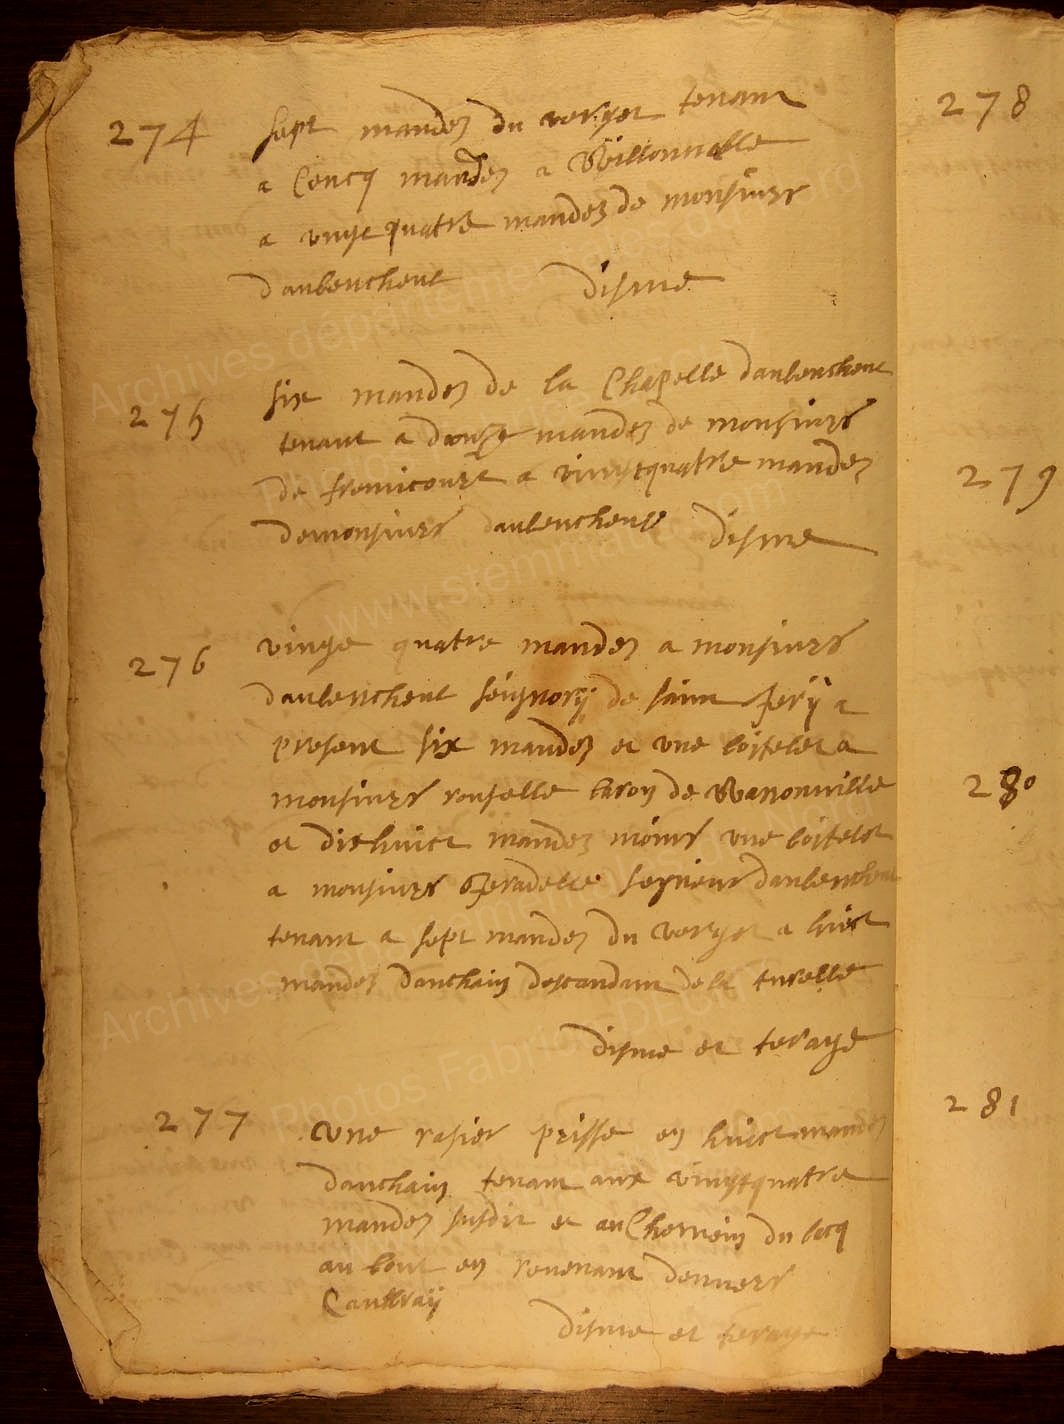 274 sept mandez du verger tenant
a Cencq mandez a Villonnelle
a vingt quatre mandez de monsieur
daubencheul disme
275 six mandez de la Chapelle daubencheul
tenant a douze mandez de monsieur
de fremicourt a vingtquatre mandez
de monsieur daubencheul disme
276 vingt quatre mandez a monsieur
daubencheul seignory de saint
present six mandez et une boistelet a
monsieur rouselle baron de Wanonville
et dishuict mandez moins une boistelet
a monsieur Pradelle segneur daubencheul
tenant a sept mandez du verger a huict
mandez danchain descandant de la turelle
disme et terage
277 une rasier prisse en huict mandez
danchain tenant aux vingtquatre
mandez susdit et au Chemein du becq
au bout en revenant denvers
Cantraij
disme et terage
278
279
280
281
Archives départementales du Nord